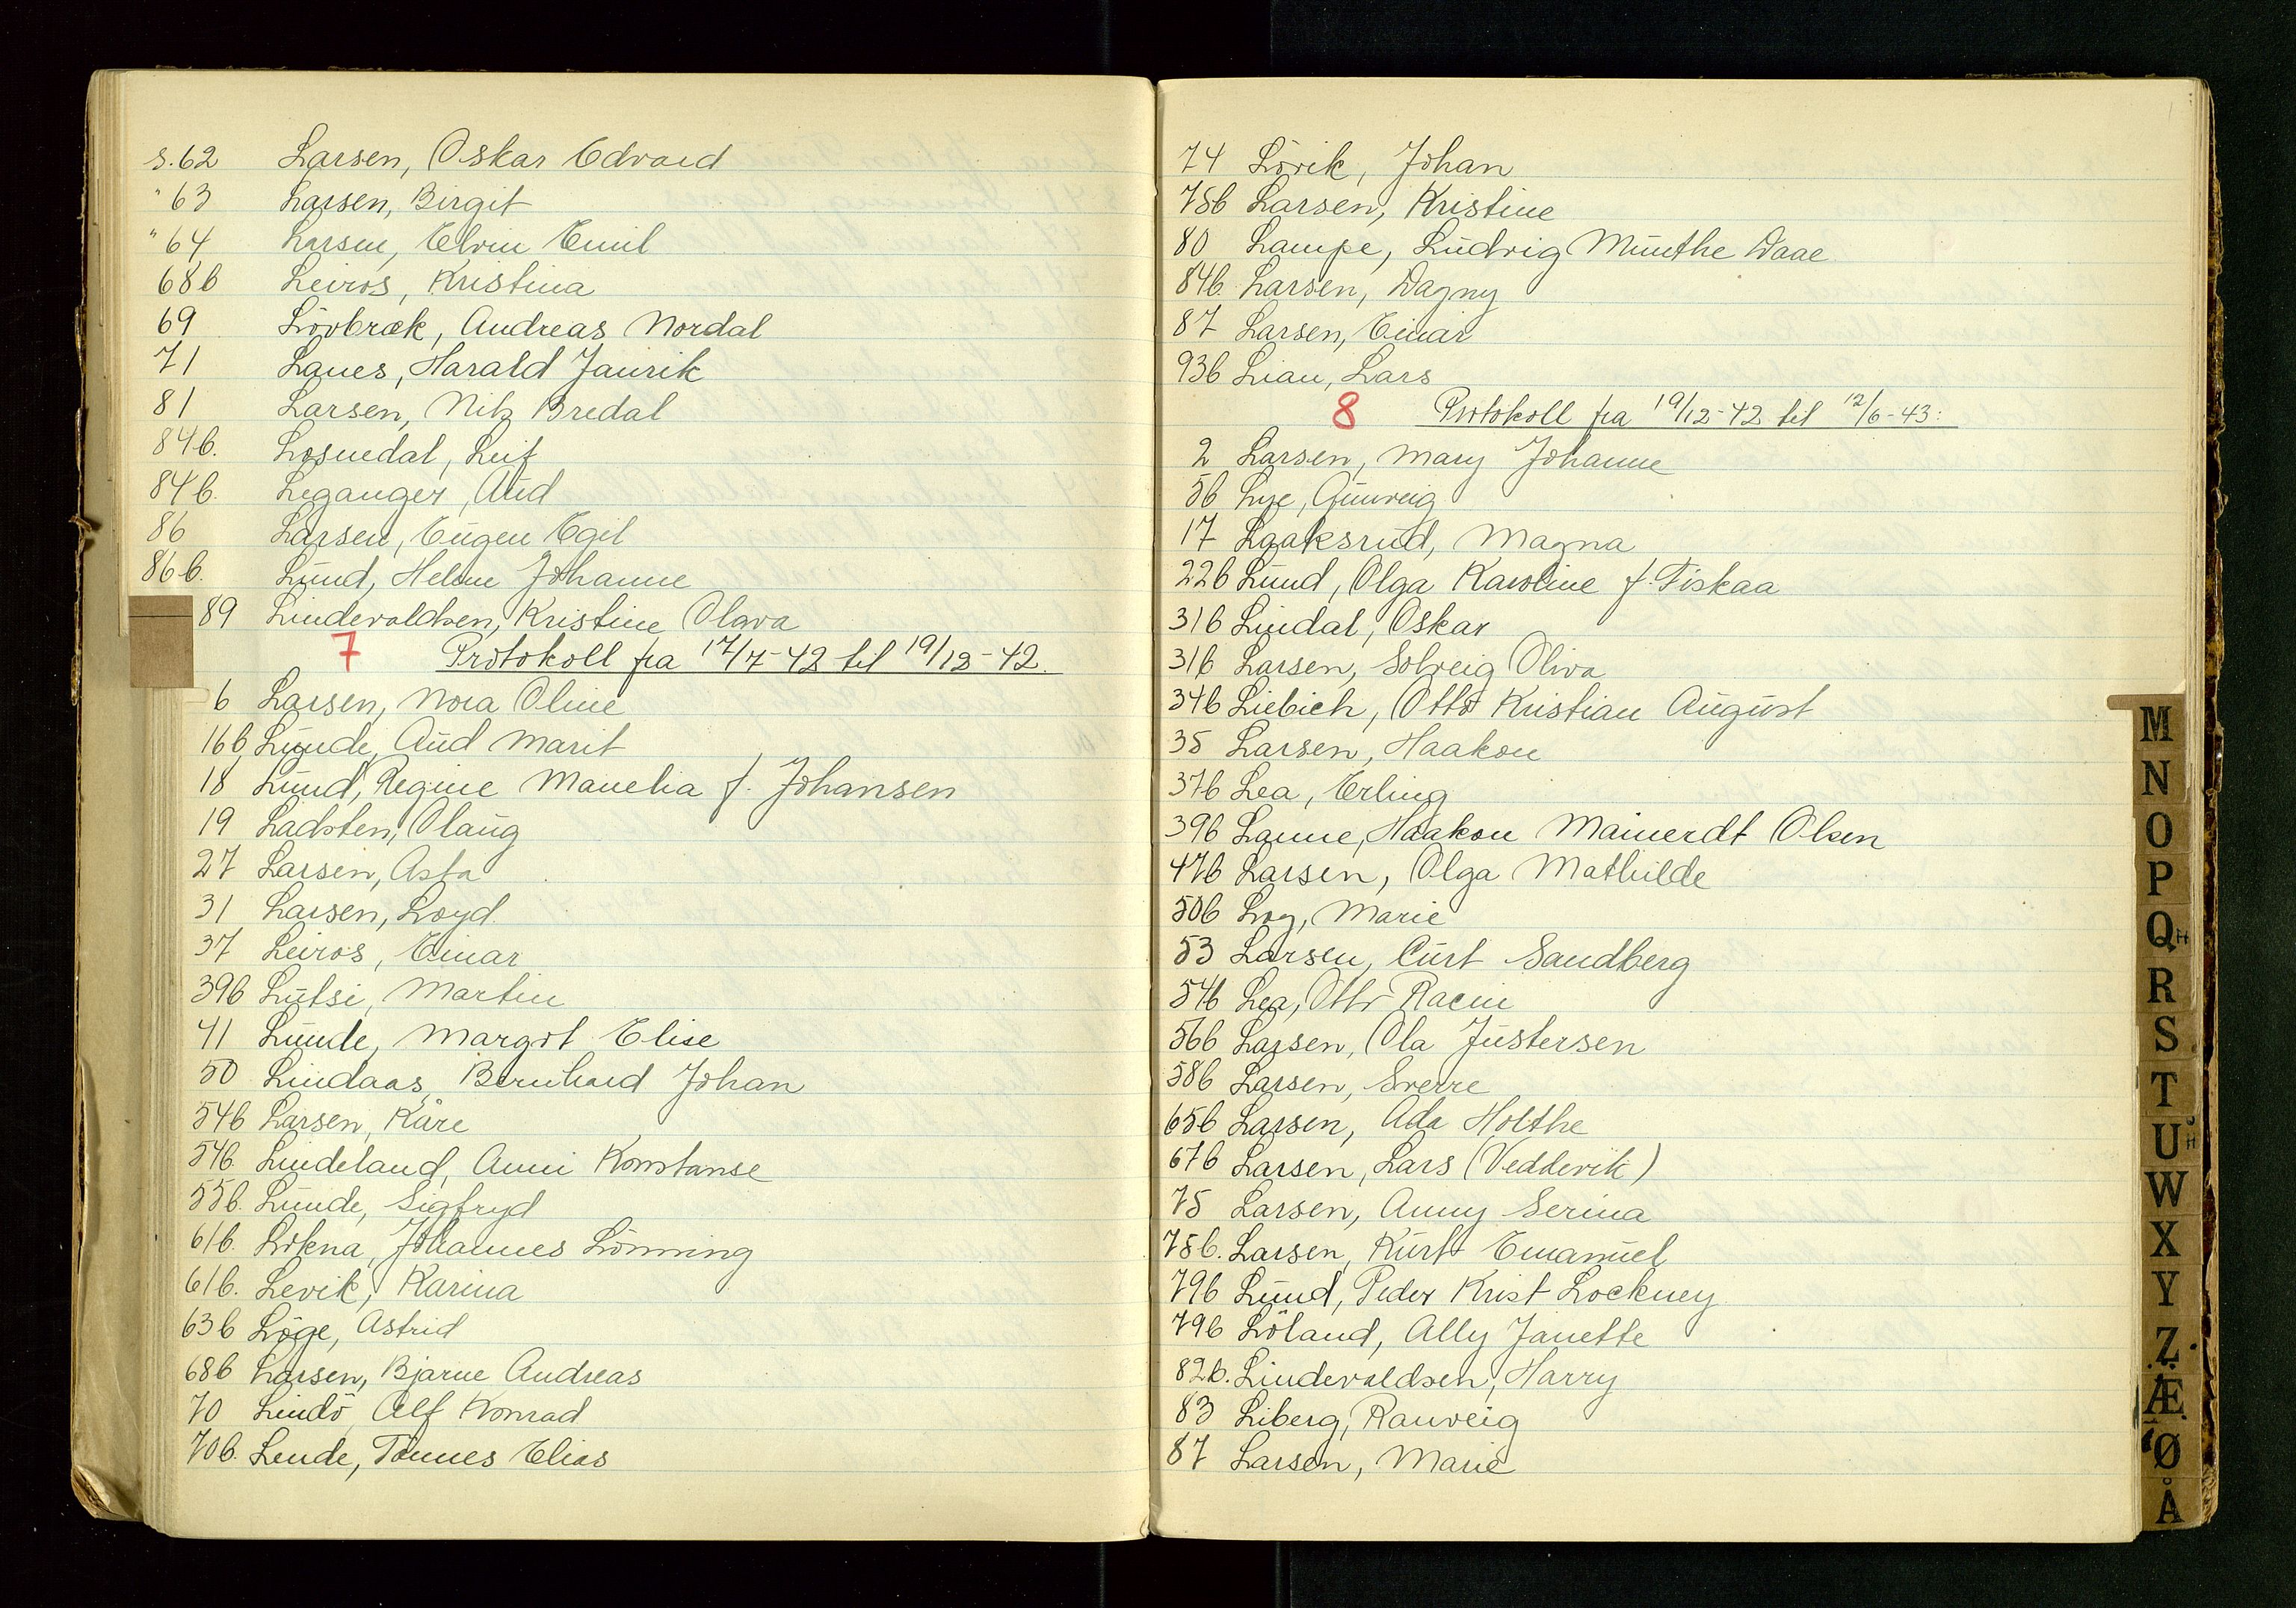 s. 62 Larsen, Oskar Edvard
" 63 Larsen, Birgit
" 64 Larsen, Elvin Emil
68b Leiros, Kristina
69 Lövbræk, Andreas Nordal
71 Lanes, Harald Janrik
81 Larsen, Nils Bredal
84b. Losnedal, Leif
84b. Leganger, Aud
86 Larsen, Eugen Egil
86b. Lund, Helene Johanne
89 Lindevaldsen, Kristine Olava
7 Protokoll fra 17/7-42 til 19/12-42.
6 Larsen, Nora Oline
16b Lunde, Aud Marit
18 Lund, Regine Manelia f. Johansen
19 Ladsten, Olaug
27 Larsen, Asta
31 Larsen, Loyd
37 Leiros, Einar
39b Lutsi, Martin
41 Lunde, Margot Elise
50 Lindaas, Bernhard Johan
54b Larsen, Kåre
54b. Lindeland, Anni Konstanse
55b. Lunde, Sigfryd
61b. Lokna, Johannes Lönning
61b. Levik, Karina
63b Löge, Astrid
68b Larsen, Bjarne Andreas
70 Lindö, Alf Konrad
70b. Lende, Tönnes Elias
74 Lövik, Johan
75b Larsen, Kristine
80 Lampe, Ludvig Munthe Daae
84b. Larsen, Dagny
87 Larsen, Einar
93b Lian, Lars
8 Protokoll fra 19/12-42 til 12/6-43:
2 Larsen, Mary Johanne
5b Lye, Gunveig
17 Laaksrud, Magna
22b Lund, Olga Karoline f. Fiskaa
31b Lindal, Oskar
31b Larsen, Solveig Oliva
34b Liebich, Otto Kristian August
35 Larsen, Haakon
37b Lea, Erling
39b Lanne, Haakon Mainerdt Olsen
47b Larsen, Olga Mathilde
50b Log, Marie
53 Larsen, Curt Sandberg
54b Lea, Otto Racin
56b Larsen, Ola Justersen
58b Larsen, Sverre
65b Larsen, Ada Holthe
67b Larsen, Lars (Vedderik)
75 Larsen, Anny Serina
75b. Larsen, Kurt Emanuel
79b Lund, Peder Krist Lockney
79b Löland, Ally Janette
82b. Lindevaldsen, Harry
83 Liberg, Ranveig
87 Larsen, Marie
M
N
O
P
Q
R
S
T
U
W
X
Y
Z
Æ
Ø
Å